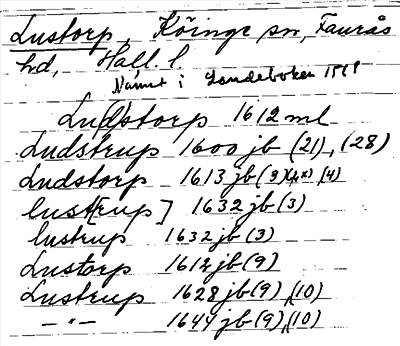 Lustorp, Köinge sn, Faurås
hd, Hall. l.
Nämnt i Landeboken 1569
Lu(d)storp 1612 ml
Ludstrup 1600 jb (21), (28)
Ludstorp 1613 jb (3) (4x) (4)
lust[rup] 1632 jb (3)
lustrup 1632 jb (3)
Lustorp 1612 jb (9)
Lustrup 1628 jb (9), (10)
—"— 1644 jb (9), (10)